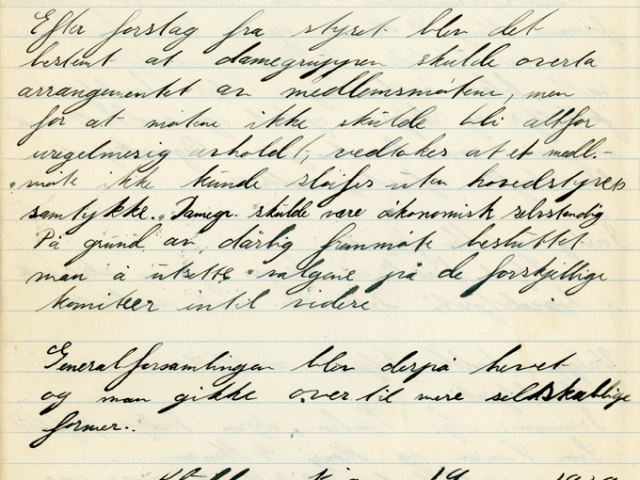 Efter forslag fra styret blev det
bestemt at damegruppen skulde overta
arrangementet av medlemsmøtene, men
for at møtene ikke skulde bli altfor
uregelmesig avholdt, vedtokes at et medl.-
møte ikke kunde sløifes uten hovedstyrets
samtykke. Damegr. skulde være økonomisk selvstendig
På grund av dårlig fremmøte besluttet
man å utsette valgene på de forskjellige
komiteer intil videre
Generalforsamlingen blev derpå hevet
og man gikke over til mere seldskablige
former..